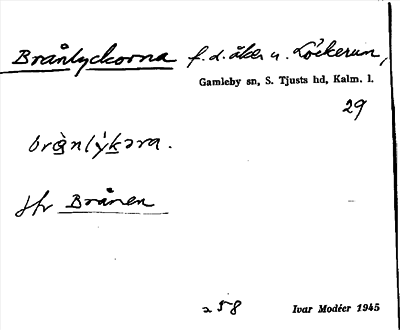 Brånlyckorna f. d. åker u. Löckerum,
Gamleby sn, S. Tjusts hd, Kalm. l.
29
brə̀nlýkəra.
Jfr Brånen
a 58
Ivar Modéer 1945